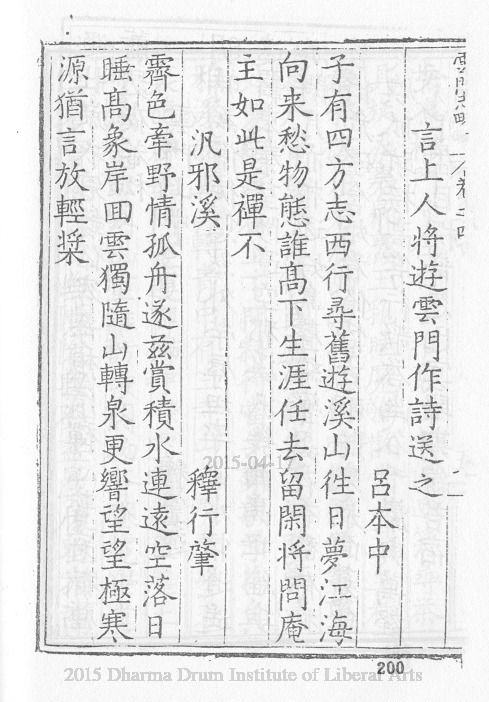 雲門志略 卷之四
言上人將遊雲門作詩送之
呂本中
子有四方志西行尋舊遊溪山往日夢江海
向来愁物態誰髙下生涯任去留閑将問庵
主如此是禪不
汎邪溪
釋行肇
霽色牽野情孤舟遂茲賞積水連遠空落日
睡髙象岸回雲獨隨山轉泉更響望望極寒
源猶言放輕槳
2015-04-17
200
2015 Dharma Drum Institute of Liberal Arts